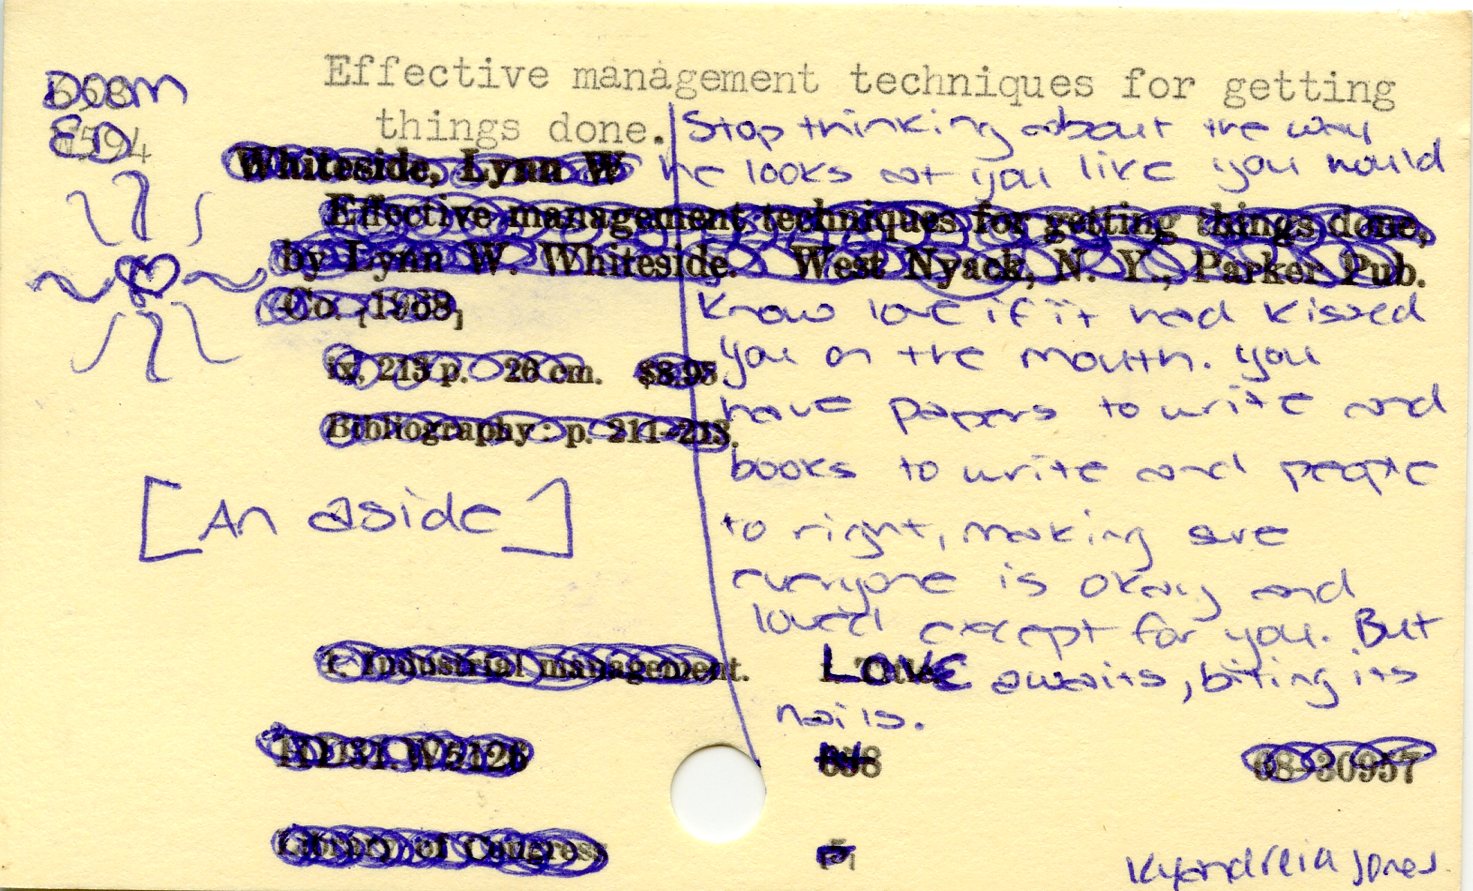 Effective management techniques for getting
things done.
DOOM
ED
658
W594
Stop thinking about the way
Whiteside, Lynn W
he looks at you like you would
Effective management techniques for getting things done,
by Lynn W. Whiteside. West Nyack, N. Y., Parker Pub.
Co. [1969]
know love if it had kissed
you on the mouth. you
ix, 213 p. 26 cm. $8.95
have papers to write and
Bibliography: p. 211-213.
books to write and people
[An aside]
to right, making sure
everyone is okay and
loved except for you. But
1. Industrial management. I. Title.
LOVE awaits, biting its
nails.
HD31.W5126
658
68-30957
Library of Congress
Kyandreia Jones.